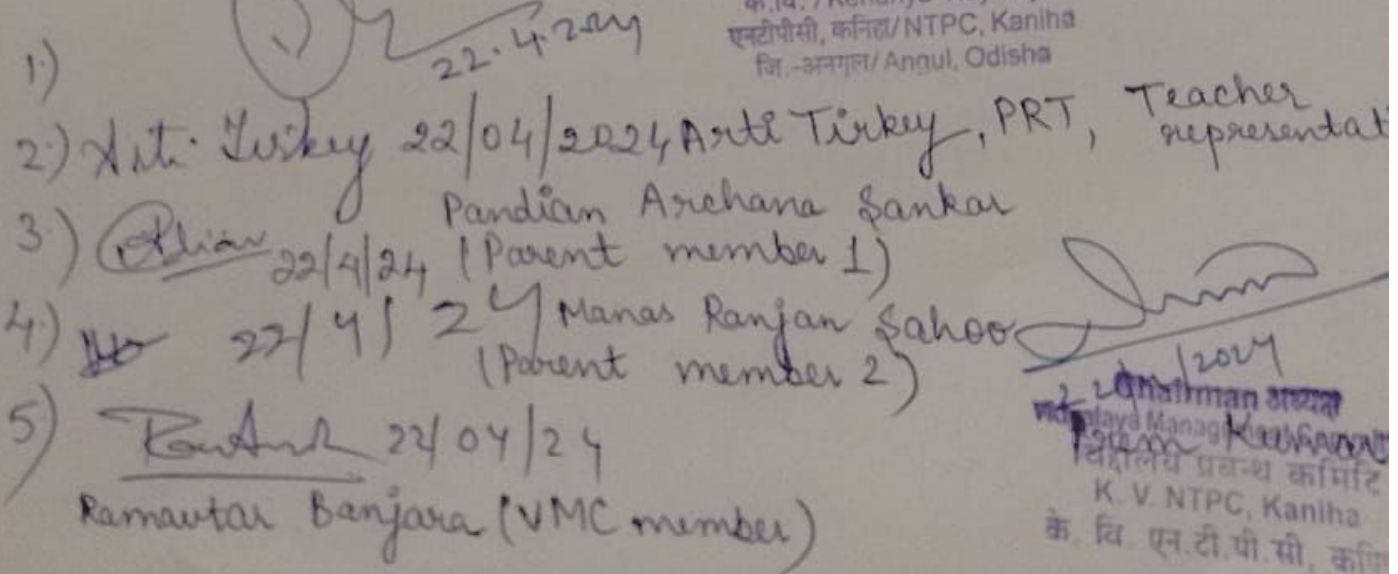 एनटीपीसी, कनिहा/NTPC, Kaniha
जि.-अनगुल/Angul, Odisha
1.) 22.4.2024
2.) Arti Tirkey 22/04/2024 Arti Tirkey, PRT, Teacher
representat
3.) 22/4/24 Pandian Archana Sankar
(Parent member 1)
4.) 22/4/24 Manas Ranjan Sahoo
(Parent member 2)
5) 22/04/24
Ramavtar Banjara (VMC member)
/2024
Chairman अध्यक्ष
Vidyalaya Manag
विद्यालय प्रबन्ध कमिटि
K. V. NTPC, Kaniha
के. वि. एन.टी.पी.सी,